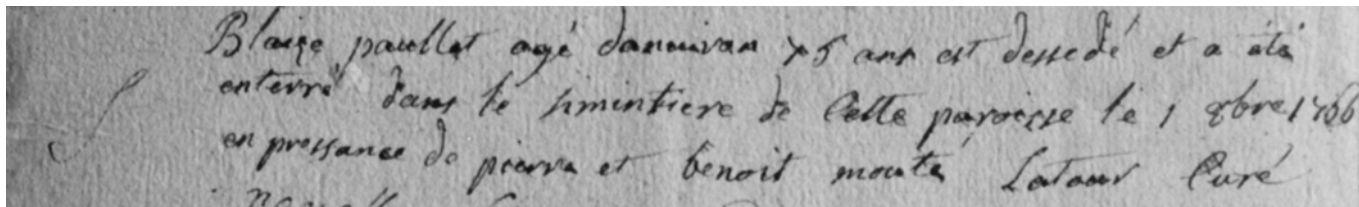 Blaise paullet agé danuiran 75 ans est dessedé et a été
enterré dans le simintiere de Cette paroisse le 1 8bre 1766
en pressance de pierre et benoit mouté Latour Curé